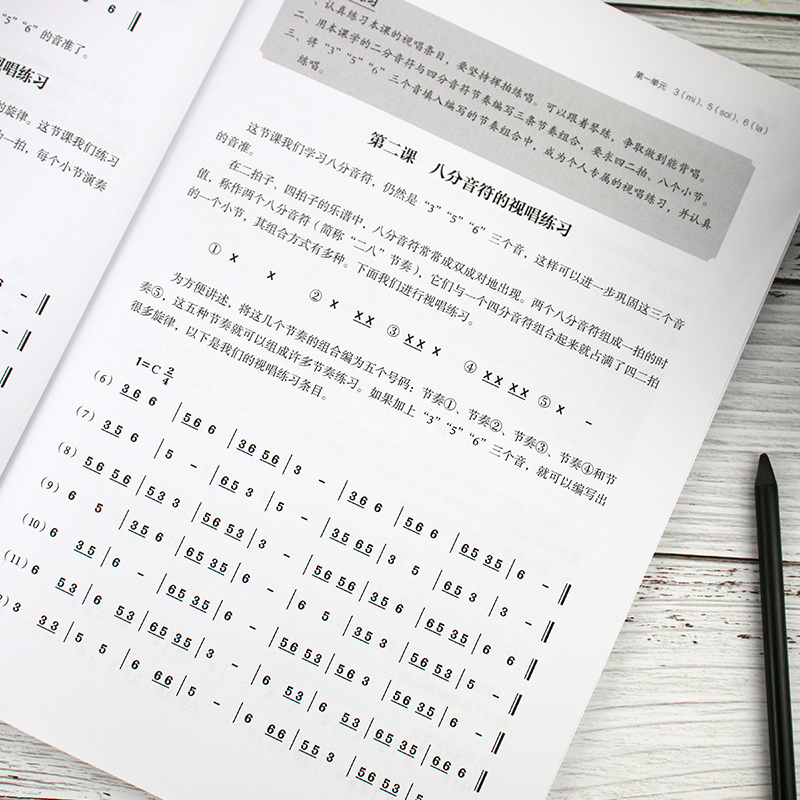 “5”“6”的音准了。
唱练习
的旋律。这节课我们练习
一拍，每个小节演奏
第一单元 3(mi)、5(sol)、6(la)
一、认真练习本课的视唱条目，要坚持挥拍练唱。可以跟着琴练，争取做到能背唱。
二、用本课学的二分音符与四分音符节奏编写三条节奏组合，要求四二拍，八个小节。
三、将“3”“5”“6”三个音填入编写的节奏组合中，成为个人专属的视唱练习，并认真
练唱。
第二课 八分音符的视唱练习
这节课我们学习八分音符，仍然是“3”“5”“6”三个音，这样可以进一步巩固这三个音
的音准。
在二拍子、四拍子的乐谱中，八分音符常常成双成对地出现。两个八分音符组成一拍的时
值，称作两个八分音符（简称“二八”节奏），它们与一个四分音符组合起来就占满了四二拍
的一个小节，其组合方式有多种。下面我们进行视唱练习。
① X X ② X XX ③ XX X ④ XX XX ⑤ X -
为方便讲述，将这几个节奏的组合编为五个号码：节奏①、节奏②、节奏③、节奏④和节
奏⑤，这五种节奏就可以组成许多节奏练习。如果加上“3”“5”“6”三个音，就可以编写出
很多旋律，以下是我们的视唱练习条目。
1=C 2/4
(6) 36 6 | 56 6 | 36 56 | 3 - | 36 6 | 56 6 | 65 35 | 6 - ‖
(7) 35 6 | 5 - | 65 3 | 5 - | 35 65 | 3 5 | 65 3 | 3 - ‖
(8) 56 56 | 53 3 | 56 53 | 3 - | 56 56 | 35 6 | 65 35 | 6 6 ‖
(9) 6 5 | 35 6 | 65 35 | 6 - | 6 5 | 35 3 | 56 53 | 5 - ‖
(10) 6 35 | 6 - | 65 35 | 6 - | 56 53 | 56 3 | 56 35 | 6 - ‖
(11) 6 53 | 6 53 | 65 35 | 3 - | 6 53 | 6 53 | 65 35 | 66 6 ‖
2) 3 33 | 5 5 | 6 66 | 5 - | 6 66 | 55 3 | 56 53 | 5